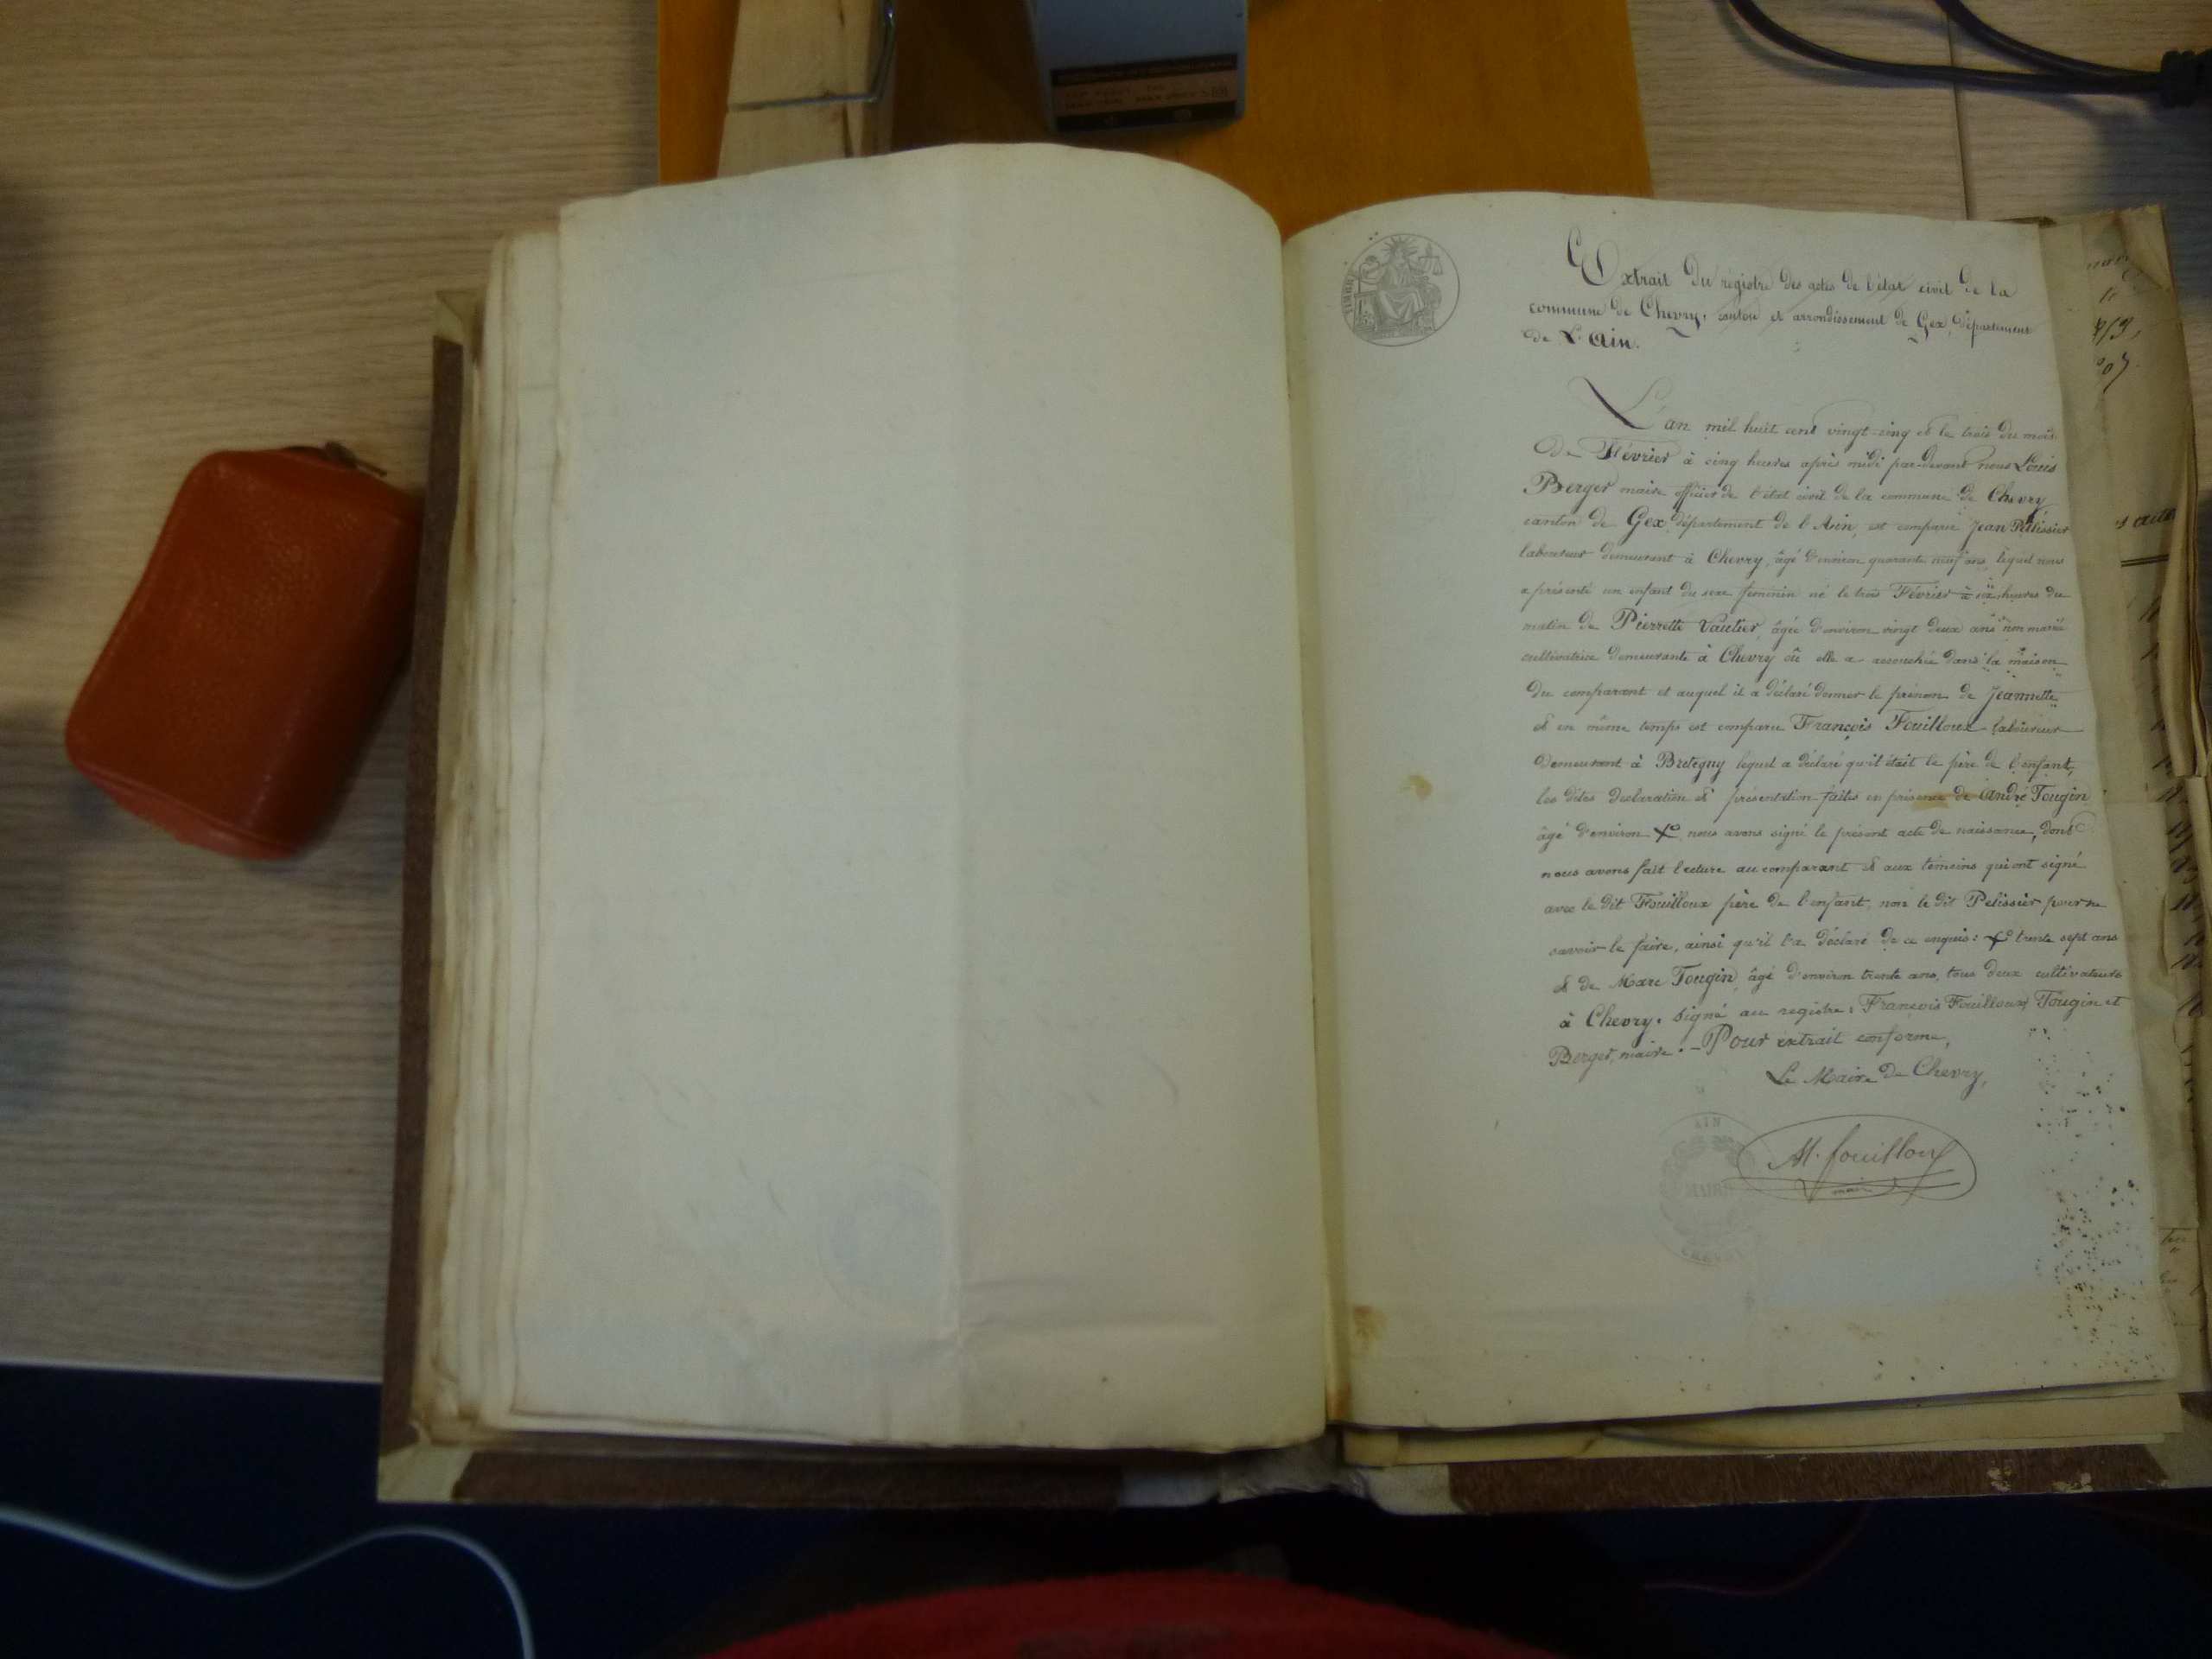 Extrait du régistre des actes de l'état civil de la
commune de Chevry, canton et arrondissement de Gex, département
de L'Ain.
L'an mil huit cent vingt-cinq & le trois du mois
de Février à cinq heures après midi par-devant nous Louis
Berger maire officier de l'état civil de la commune de Chevry
canton de Gex, département de l'Ain, est comparu Jean Pélissier
laboureur demeurant à Chevry, âgé d'environ quarante neuf ans, lequel nous
a présenté un enfant du sexe féminin né le trois Février à heures du
matin de Pierrette Vautier, âgée d'environ vingt deux ans non mariée
cultivatrice demeurante à Chevry où elle a accouchée dans la maison
du comparant et auquel il a déclaré donner le prénom de Jeannette
& en même temps est comparu François Fouilloux laboureur
demeurant à Bretegny lequel a déclaré qu'il était le père de l'enfant,
les dites declaration & présentation faites en présence de André Tougin
âgé d'environ nous avons signé le présent acte de naissance, dont
nous avons fait lecture au comparant & aux témoins qui ont signé
avec le dit Fouilloux père de l'enfant, non le dit Pelissier pour ne
savoir le faire, ainsi qu'il l'a déclaré de ce enquis: trente sept ans
& de Marc Tougin, âgé d'environ trente ans, tous deux cultivateurs
à Chevry. Signé au registre: François Fouilloux, Tougin et
Berger, maire. - Pour extrait conforme,
Le Maire de Chevry,
M. fouilloux
maire
AIN
MAIRIE
CHEVRY
TIMBRE